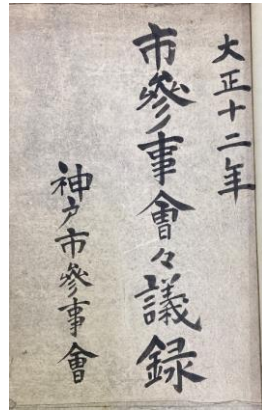 大正十二年
市參事會々議録
神戸市參事會